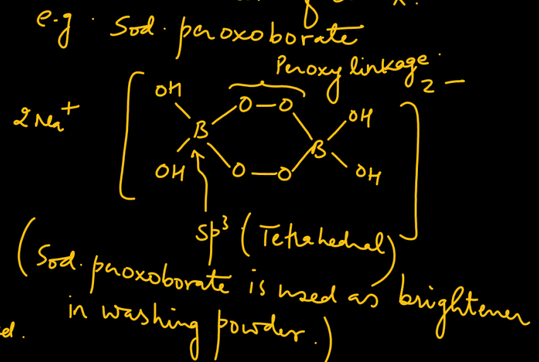 e.g. Sod. peroxoborate
Peroxy linkage
2 Na⁺ [ OH OH B O—O O—O B OH OH ] 2−
sp³ (Tetrahedral)
(Sod. peroxoborate is used as brightener
in washing powder.)